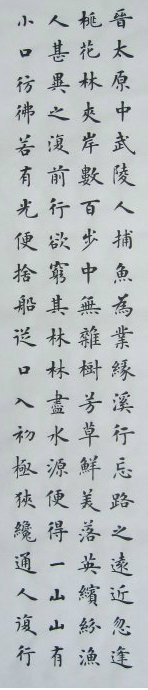 晉太原中武陵人捕魚為業緣溪行忘路之遠近忽逢
桃花林夾岸數百步中無雜樹芳草鮮美落英繽紛漁
人甚異之復前行欲窮其林林盡水源便得一山山有
小口彷彿若有光便捨船從口入初極狹纔通人復行